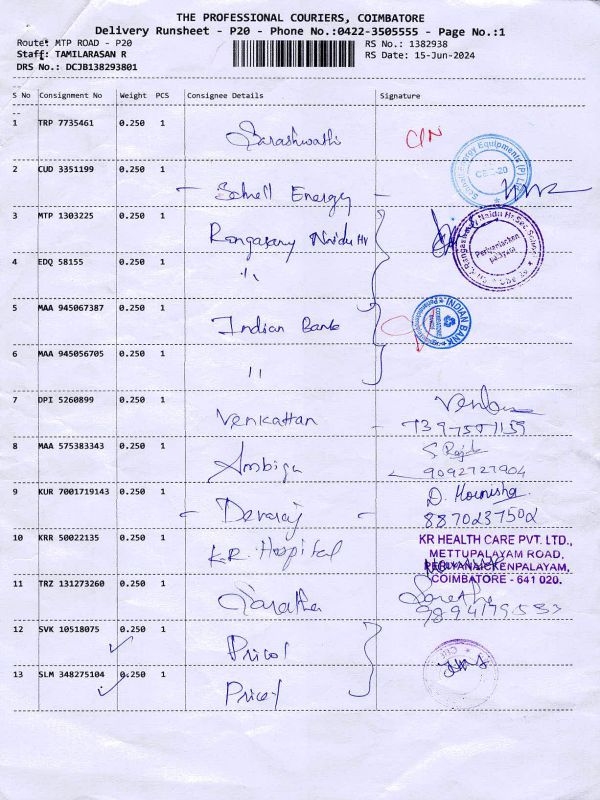 THE PROFESSIONAL COURIERS, COIMBATORE
Delivery Runsheet - P20 - Phone No.:0422-3505555 - Page No.:1
Route: MTP ROAD - P20
RS No.: 1382938
Staff: TAMILARASAN R
RS Date: 15-Jun-2024
DRS No.: DCJB138293801
S No Consignment No Weight PCS Consignee Details Signature
1 TRP 7735461 0.250 1 Sarashwathi
2 CUD 3351199 0.250 1 Schnell Energy
Schnell Energy Equipments (P) Ltd
CBE-20
3 MTP 1303225 0.250 1 Rangasamy Naidu Hr
4 EDQ 58155 0.250 1 "
5 MAA 945067387 0.250 1 Indian Bank
INDIAN BANK
6 MAA 945056705 0.250 1 "
7 DPI 5260899 0.250 1 Venkattan
8 MAA 575383343 0.250 1 Ambiga
S. Rajah
9092727904
9 KUR 7001719143 0.250 1 Devaraj
D. Hounisha
8870237502
10 KRR 50022135 0.250 1 K.R. Hospital
KR HEALTH CARE PVT. LTD.,
METTUPALAYAM ROAD,
PERIYANAICKENPALAYAM,
COIMBATORE - 641 020.
11 TRZ 131273260 0.250 1 Saratha
12 SVK 10518075 0.250 1 Pricol
13 SLM 348275104 0.250 1 Pricol